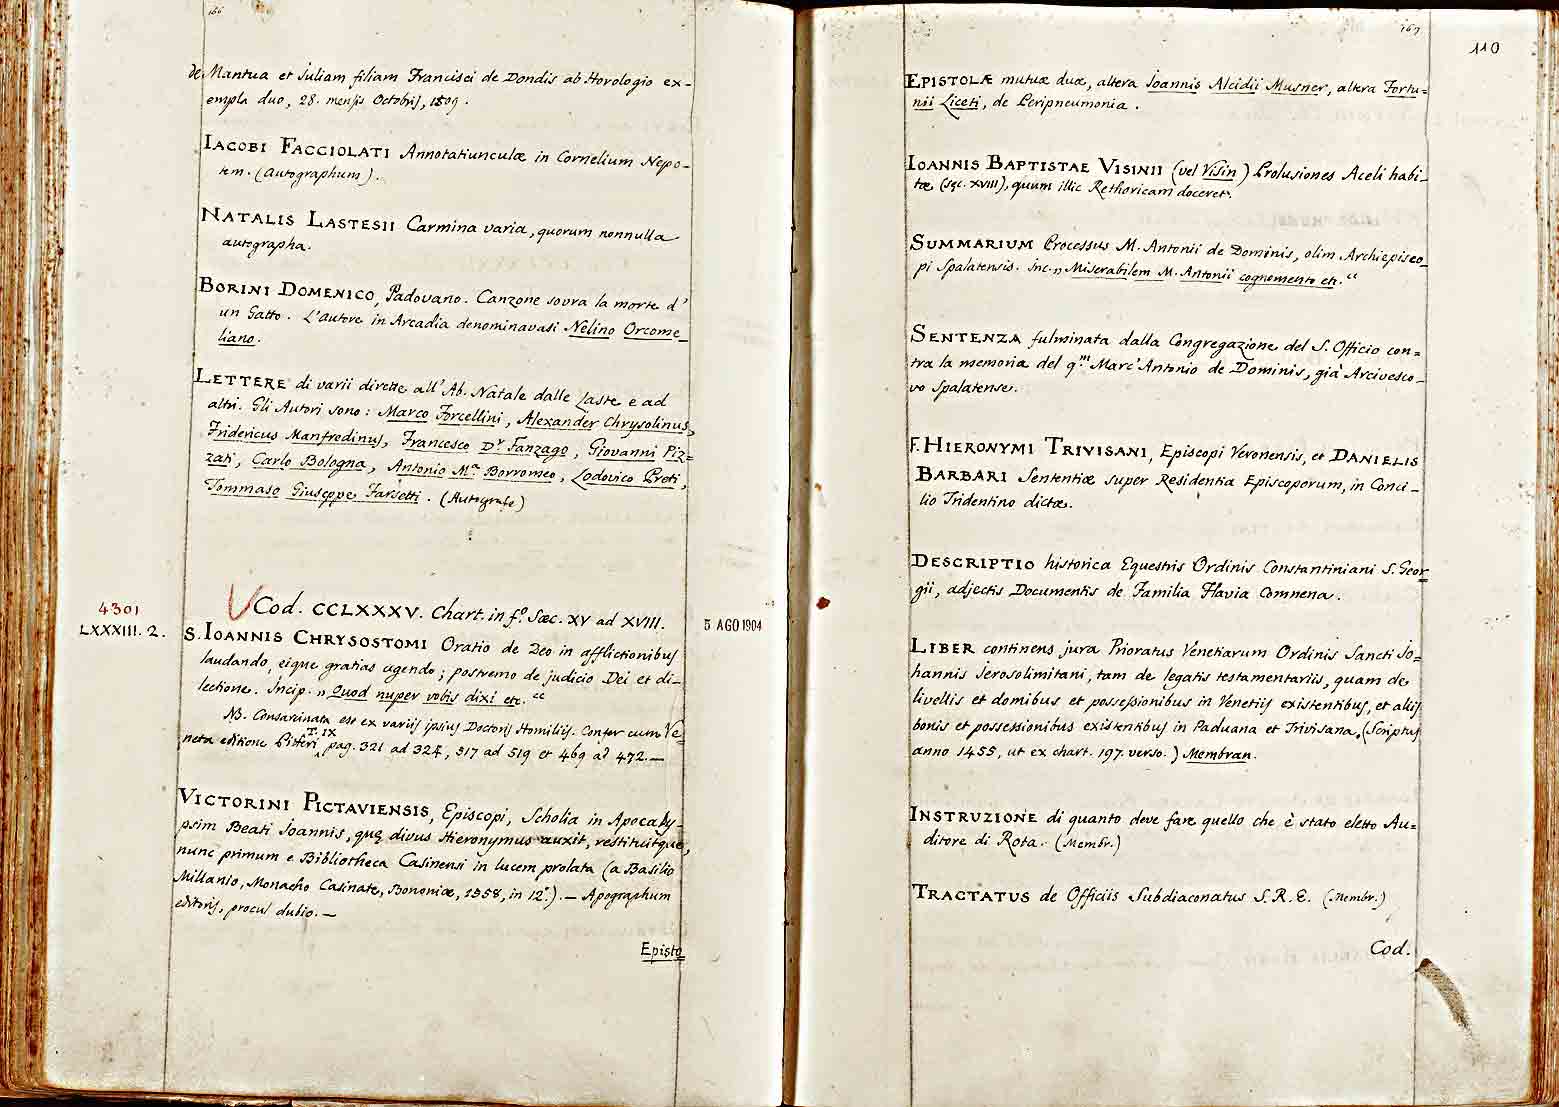 166
de Mantua et Juliam filiam Francisci de Dondis ab Horologio ex-
empla duo, 28. mensis Octobris, 1809.
IACOBI FACCIOLATI Annotatiunculæ in Cornelium Nepo-
tem. (Autographum).
NATALIS LASTESII Carmina varia, quorum nonnulla
autographa.
BORINI DOMENICO, Padovano. Canzone sovra la morte d'
un Gatto. L'autore in Arcadia denominavasi Nelino Orcome_
liano.
LETTERE di varii dirette all' Ab. Natale dalle Laste e ad
altri. Gli Autori sono: Marco Forcellini, Alexander Chrysolinus,
Fridericus Manfrodinus, Francesco Dr. Fanzago, Giovanni Piz=
zati, Carlo Bologna, Antonio Mª. Borromeo, Lodovico Preti,
Tommaso Giuseppe Farsetti. (Autografe)
Cod. CCLXXXV. Chart. in fº. Sæc. XV ad XVIII.
4301
LXXXIII. 2.
5 AGO 1904
S. IOANNIS CHRYSOSTOMI Oratio de Deo in afflictionibus
laudando, eique gratias agendo; postremo de judicio Dei et di-
lectione. Incip. „ Quod nuper vobis dixi etc. “
NB. Consarcinata est ex variis ipsius Doctoris Homiliis. Confer cum Ve-
T. IX
neta editione Pitteri pag. 321 ad 324, 517 ad 519 et 469 ad 472. —
VICTORINI PICTAVIENSIS, Episcopi, Scholia in Apocaly-
psim Beati Joannis, quę divus Hieronymus auxit, restituitque,
nunc primum e Bibliotheca Casinensi in lucem prolata (a Basilio
Millanio, Monacho Casinate, Bononiæ, 1558, in 12º.). — Apographum
editoris, procul dubio. —
Episto
167
110
EPISTOLÆ mutuæ duæ, altera Joannis Alcidii Musner, altera Fortu=
nii Liceti, de Peripneumonia.
IOANNIS BAPTISTAE VISINII (vel Visin) Prolusiones Aceli habi_
tæ (sęc. XVIII), quum illic Rethoricam doceret.
SUMMARIUM Processus M. Antonii de Dominis, olim Archiepisco_
pi Spalatensis. Inc. „ Miserabilem M. Antonii cognomento etc. “
SENTENZA fulminata dalla Congregazione del S. Officio con=
tra la memoria del q.m Marc' Antonio de Dominis, già Arcivesco-
vo Spalatense.
F. HIERONYMI TRIVISANI, Episcopi Veronensis, et DANIELIS
BARBARI Sententiæ super Residentia Episcoporum, in Conci_
lio Tridentino dictæ.
DESCRIPTIO historica Equestris Ordinis Constantiniani S. Geor=
gii, adjectis Documentis de Familia Flavia Comnena.
LIBER continens jura Prioratus Venetiarum Ordinis Sancti Jo=
hannis Jerosolimitani, tam de legatis testamentariis, quam de
livellis et domibus et possessionibus in Venetiis existentibus, et aliis
bonis et possessionibus existentibus in Paduana et Trivisana. (Scriptus
anno 1455, ut ex chart. 197. verso.) Membran.
INSTRUZIONE di quanto deve fare quello che è stato eletto Au=
ditore di Rota. (Membr.)
TRACTATUS de Officiis Subdiaconatus S. R. E. (Membr.)
Cod.